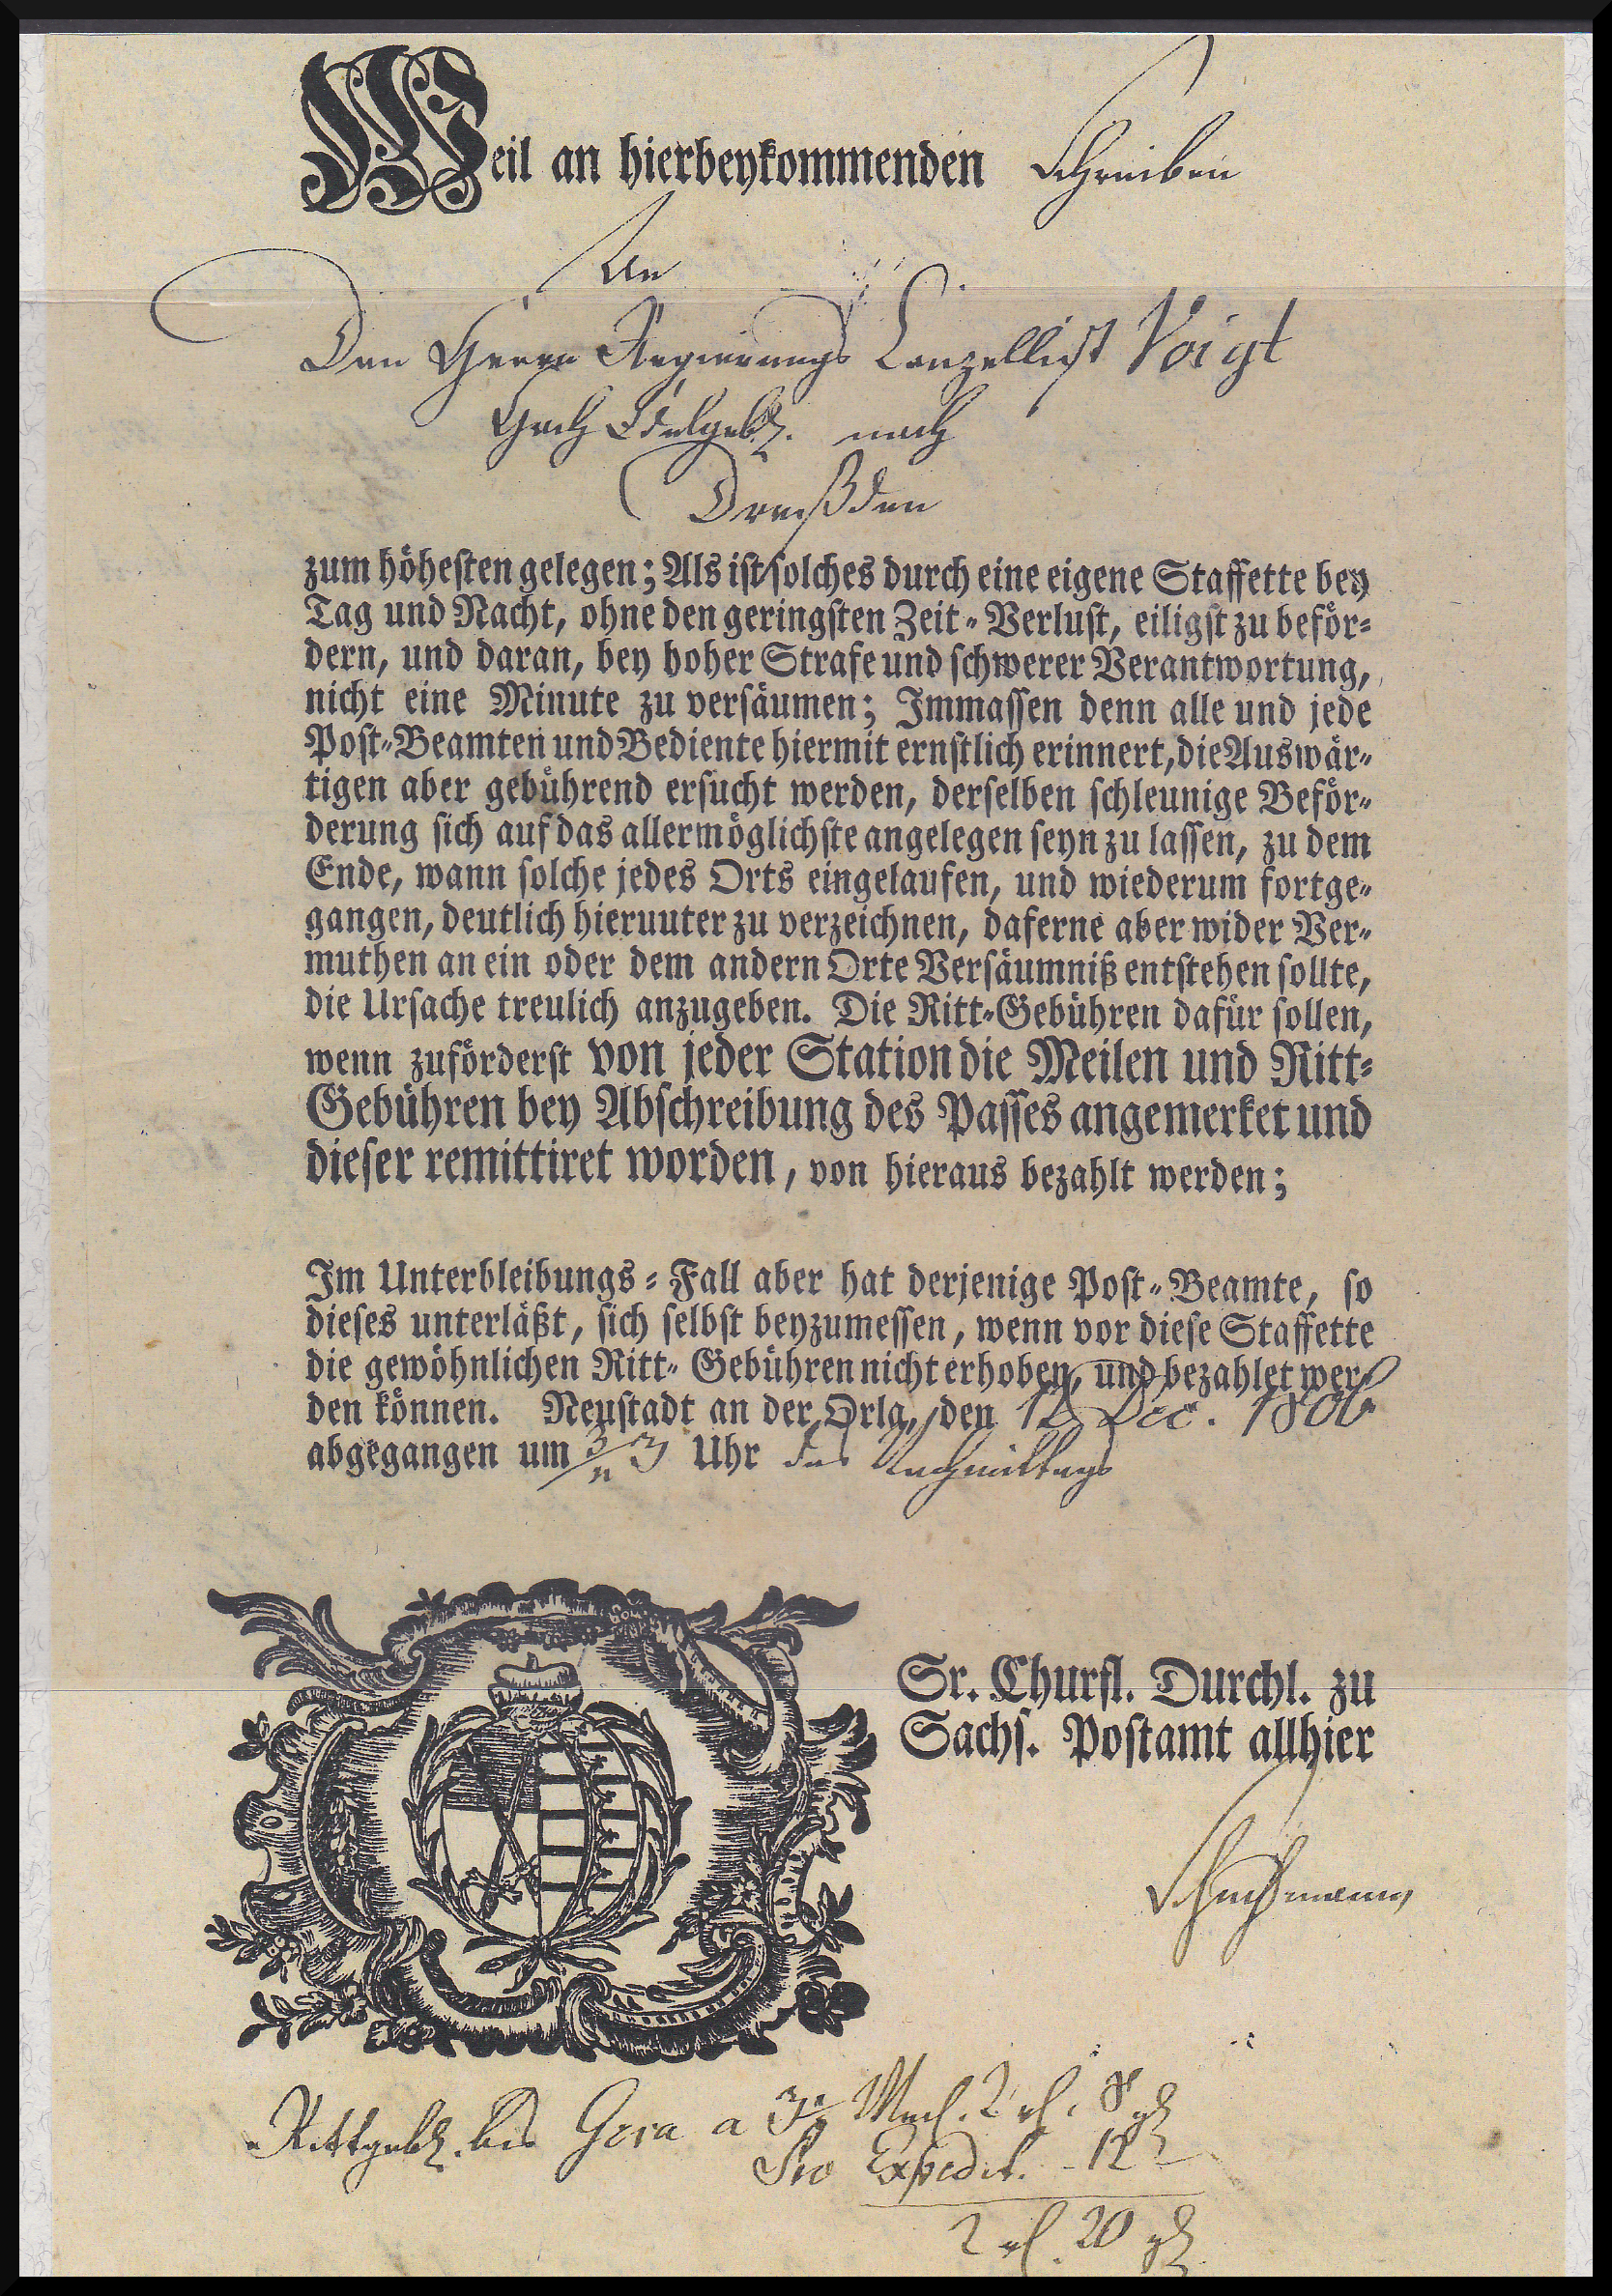 Weil an hierbeykommenden Schreiben
An
Den Herrn Regierungs Canzellist Voigt
Hoch Edelgeb. nach
Dreßden
zum höhesten gelegen; Als ist solches durch eine eigene Staffette bey
Tag und Nacht, ohne den geringsten Zeit-Verlust, eiligst zu beför-
dern, und daran, bey hoher Strafe und schwerer Verantwortung,
nicht eine Minute zu versäumen; Immassen denn alle und jede
Post-Beamten und Bediente hiermit ernstlich erinnert, die Auswär-
tigen aber gebührend ersucht werden, derselben schleunige Beför-
derung sich auf das allermöglichste angelegen seyn zu lassen, zu dem
Ende, wann solche jedes Orts eingelaufen, und wiederum fortge-
gangen, deutlich hieruuter zu verzeichnen, daferne aber wider Ver-
muthen an ein oder dem andern Orte Versäumniß entstehen sollte,
die Ursache treulich anzugeben. Die Ritt-Gebühren dafür sollen,
wenn zuförderst von jeder Station die Meilen und Ritt-
Gebühren bey Abschreibung des Passes angemerket und
dieser remittiret worden, von hieraus bezahlt werden;
Im Unterbleibungs-Fall aber hat derjenige Post-Beamte, so
dieses unterläßt, sich selbst beyzumessen, wenn vor diese Staffette
die gewöhnlichen Ritt-Gebühren nicht erhoben, und bezahlet wer-
den können. Neustadt an der Orla, den Dec. 1806
abgegangen um 3/4 3 Uhr des Nachmittags
Sr. Churfl. Durchl. zu
Sachs. Postamt allhier
Rittgeb. bis Gera a 3 1/2 Meil. 2 rl. 8 gl
Pro Expedit. - 12 -
2 rl. 20 gl